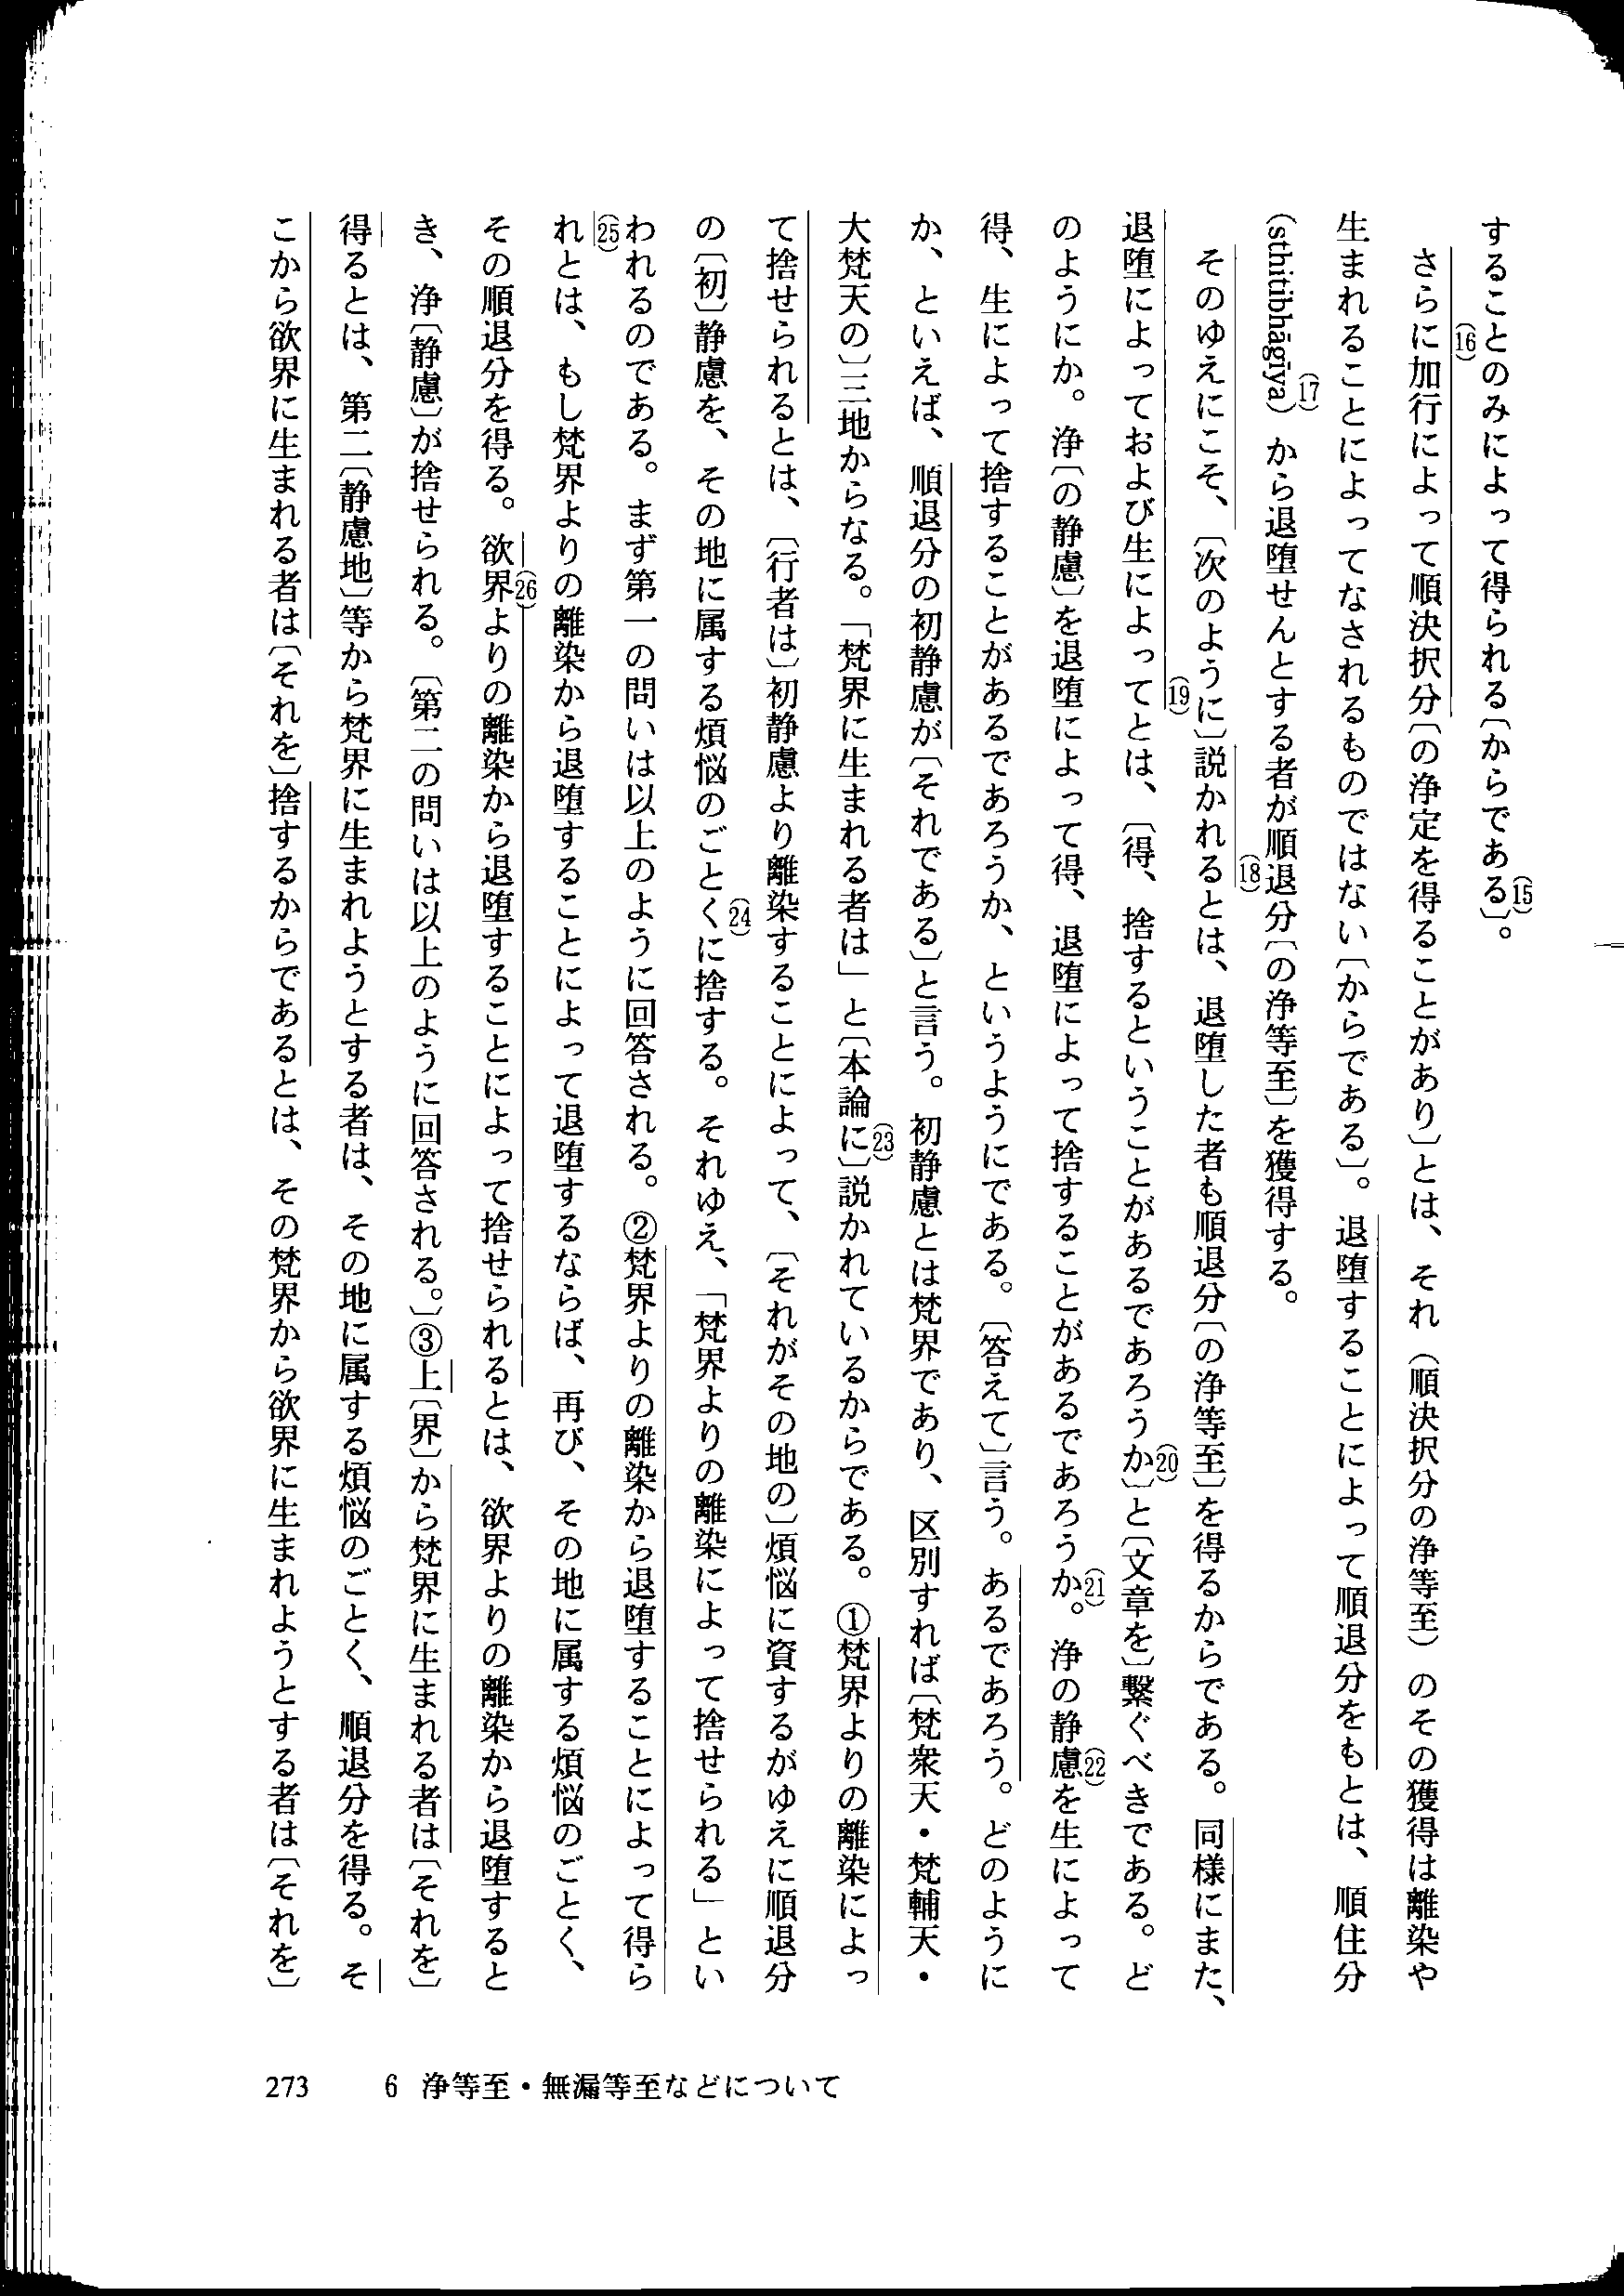 することのみによって得られる〔からである(15)〕。
さらに(16)加行によって順決択分〔の浄定を得ることがあり〕とは、それ（順決択分の浄等至）のその獲得は離染や
生まれることによってなされるものではない〔からである〕。退堕することによって順退分をもとは、順住分
(sthitibhāgīya)(17) から退堕せんとする者が順退分〔の浄等至〕を獲得する。
そのゆえにこそ、〔次のように〕説かれる(18)とは、退堕した者も順退分〔の浄等至〕を得るからである。同様にまた、
退堕によっておよび生によって(19)とは、〔得、捨するということがあるであろうか(20)〕と〔文章を〕繋ぐべきである。ど
のようにか。浄〔の静慮〕を退堕によって得、退堕によって捨することがあるであろうか(21)。浄の静慮(22)を生によって
得、生によって捨することがあるであろうか、というようにである。〔答えて〕言う。あるであろう。どのように
か、といえば、順退分の初静慮が〔それである〕と言う。初静慮とは梵界であり、区別すれば〔梵衆天・梵輔天・
大梵天の〕三地からなる。「梵界に生まれる者は」と〔本論に(23)〕説かれているからである。①梵界よりの離染によっ
て捨せられるとは、〔行者は〕初静慮より離染することによって、〔それがその地の〕煩悩に資するがゆえに順退分
の〔初〕静慮を、その地に属する煩悩のごとく(24)に捨する。それゆえ、「梵界よりの離染によって捨せられる」とい
われるのである。まず第一の問いは以上のように回答される。②梵界よりの離染から退堕することによって得ら
れ(25)とは、もし梵界よりの離染から退堕することによって退堕するならば、再び、その地に属する煩悩のごとく、
その順退分を得る。欲界(26)よりの離染から退堕することによって捨せられるとは、欲界よりの離染から退堕すると
き、浄〔静慮〕が捨せられる。〔第二の問いは以上のように回答される。〕③上〔界〕から梵界に生まれる者は〔それを〕
得るとは、第二〔静慮地〕等から梵界に生まれようとする者は、その地に属する煩悩のごとく、順退分を得る。そ
こから欲界に生まれる者は〔それを〕捨するからであるとは、その梵界から欲界に生まれようとする者は〔それを〕
273　6 浄等至・無漏等至などについて